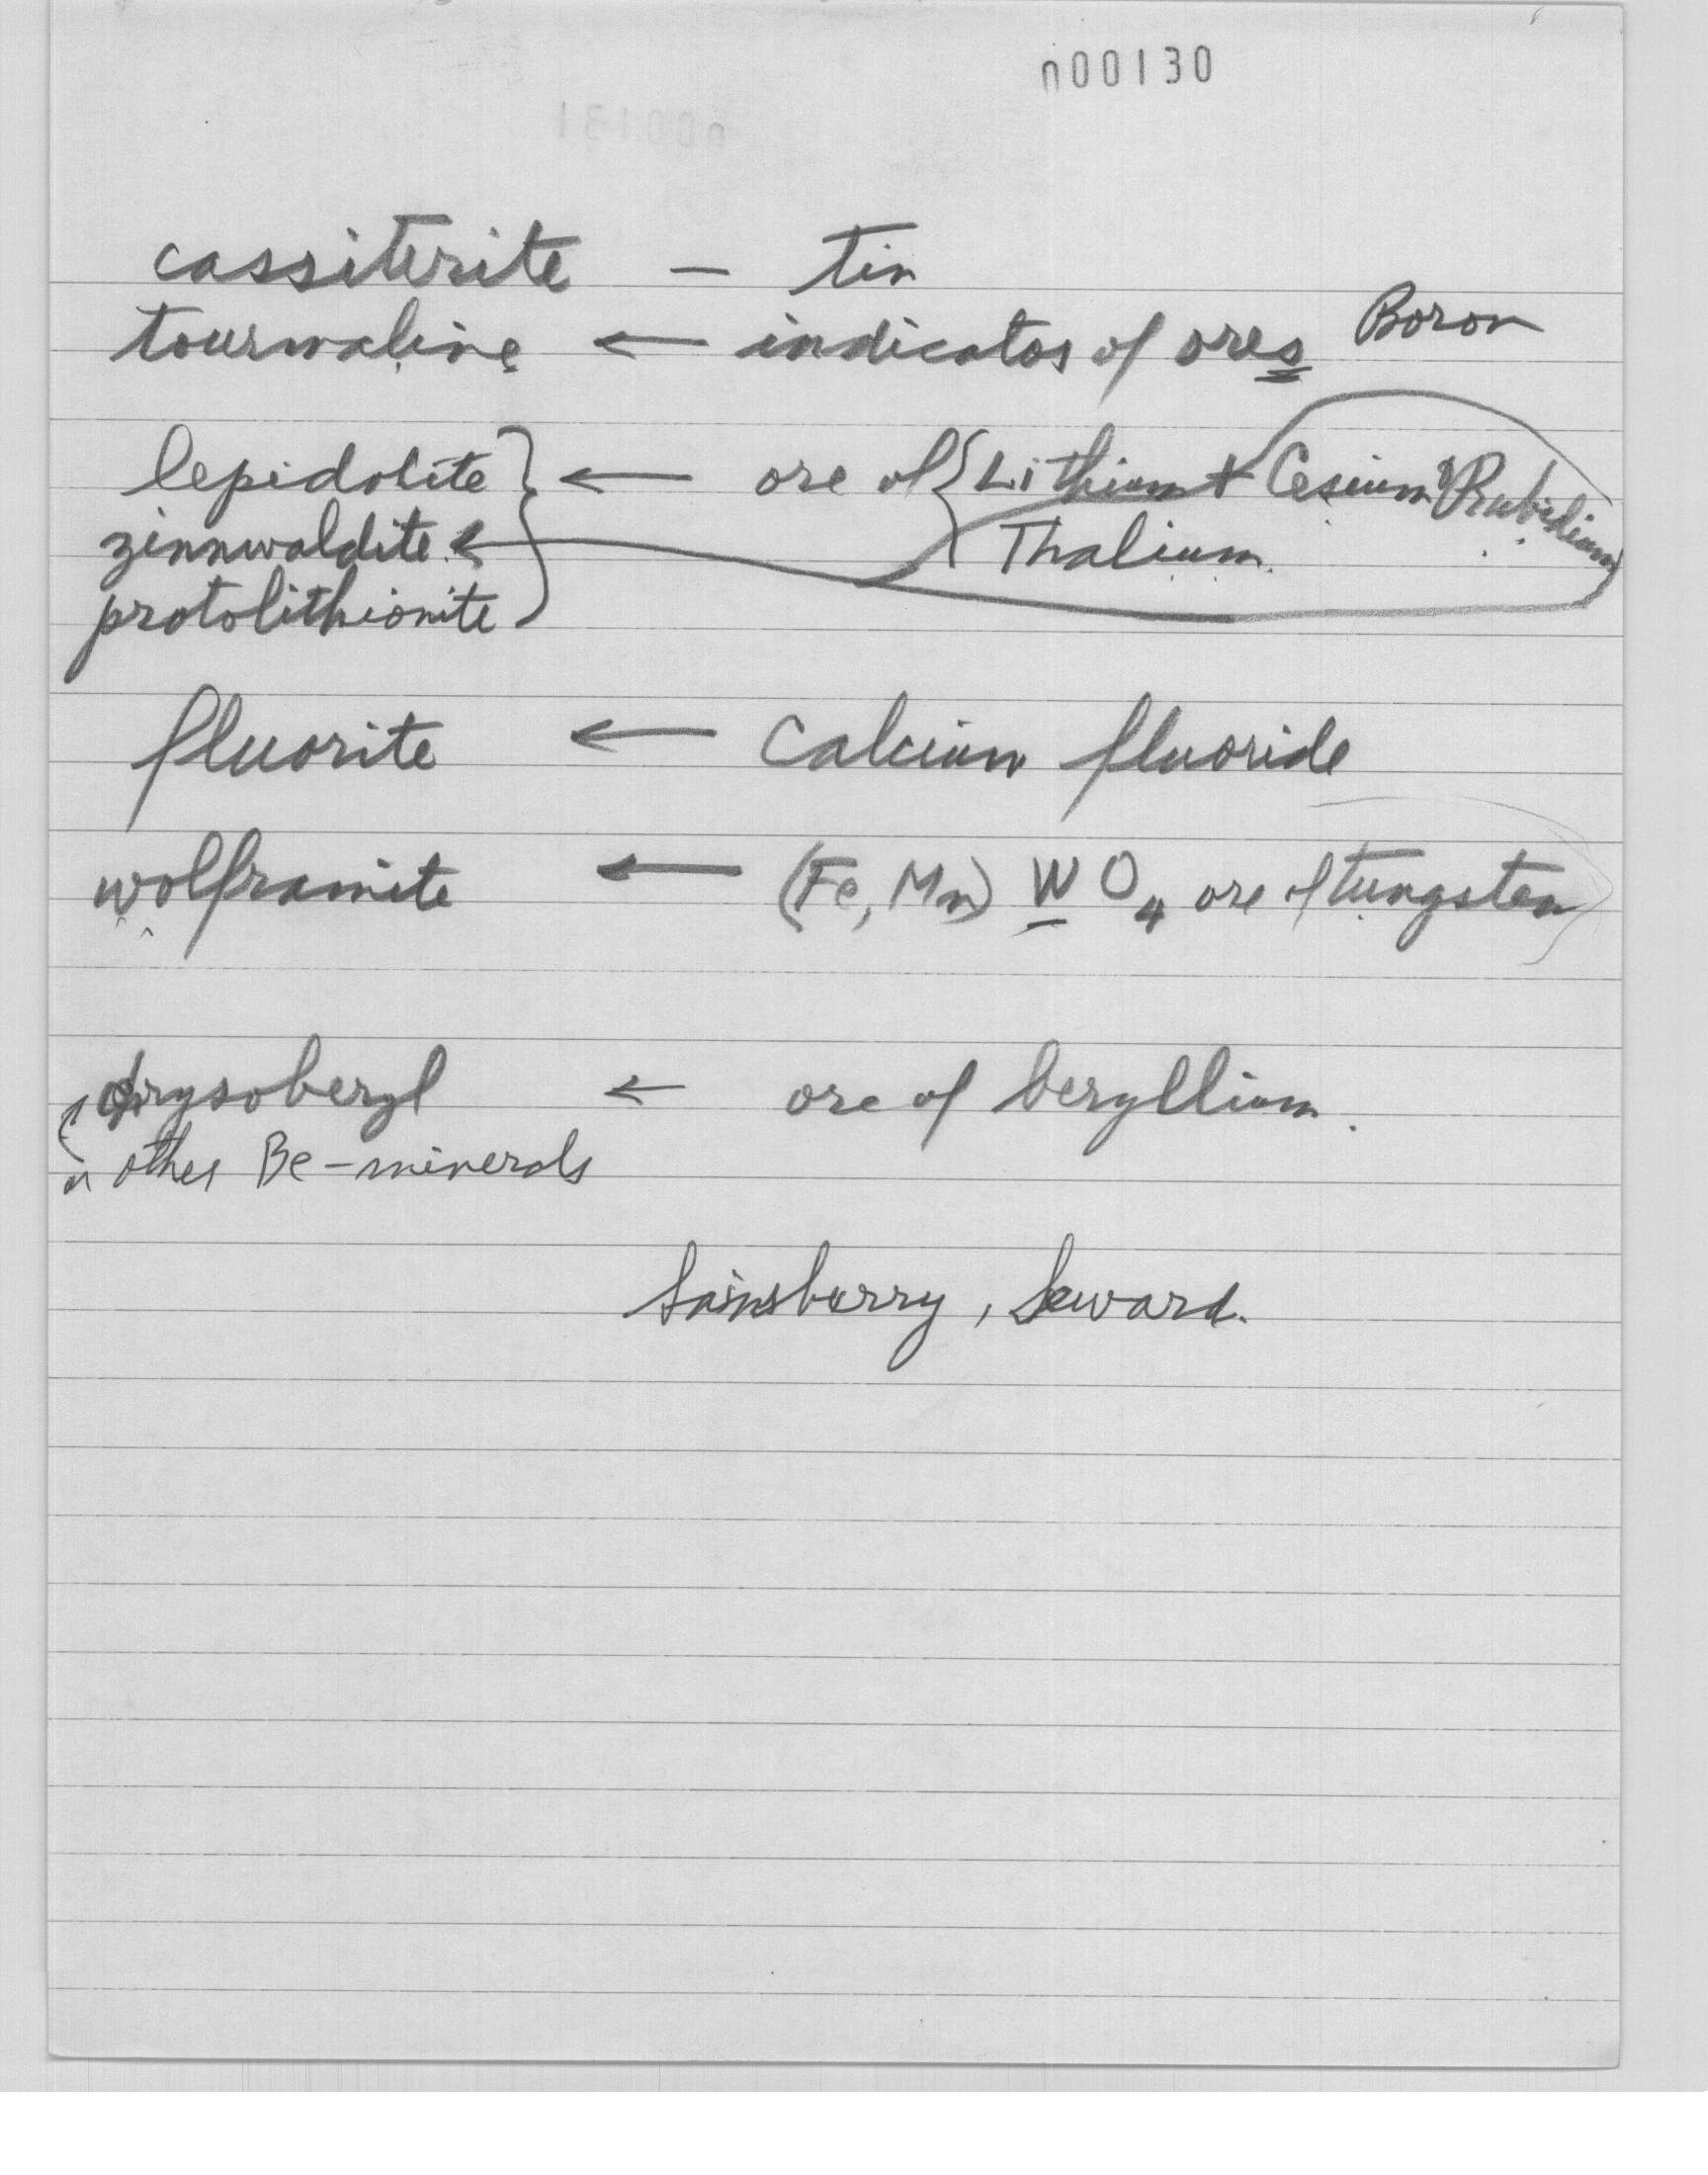 000130
cassiterite — tin
tourmaline ← indicator of ores Boron
lepidolite } ← ore of { Lithium + Cesium & Rubidium
zinnwaldite ← Thalium.
protolithionite
fluorite ← Calcium fluoride
wolframite ← (Fe, Mn) WO4 ore of tungsten
chrysoberyl ← ore of beryllium.
or other Be-minerals
Sainsburry, Seward.